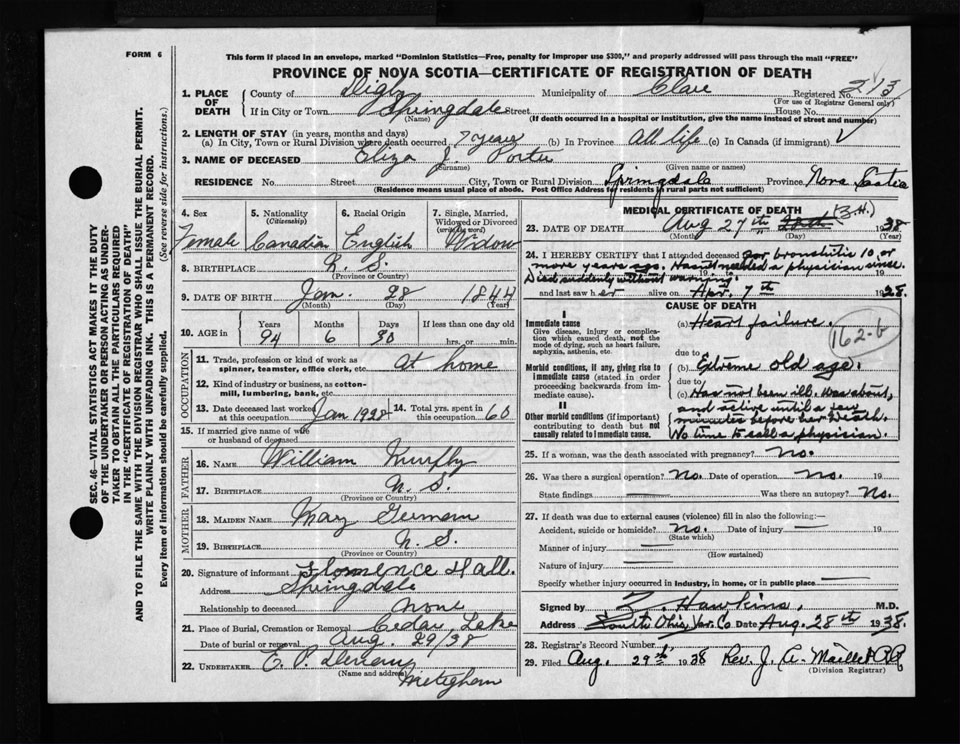 FORM 6
This form if placed in an envelope, marked "Dominion Statistics—Free, penalty for improper use $300," and properly addressed will pass through the mail "FREE"
PROVINCE OF NOVA SCOTIA—CERTIFICATE OF REGISTRATION OF DEATH
SEC. 46—VITAL STATISTICS ACT MAKES IT THE DUTY
OF THE UNDERTAKER OR PERSON ACTING AS UNDER-
TAKER TO OBTAIN ALL THE PARTICULARS REQUIRED
IN THE "CERTIFICATE OF REGISTRATION OF DEATH"
AND TO FILE THE SAME WITH THE DIVISION REGISTRAR WHO SHALL ISSUE THE BURIAL PERMIT.
WRITE PLAINLY WITH UNFADING INK. THIS IS A PERMANENT RECORD.
Every item of information should be carefully supplied. (See reverse side for instructions.)
1. PLACE OF DEATH County of Digby Municipality of Clare Registered No. 213
(For use of Registrar General only)
If in City or Town Springdale Street House No.
(Name) (If death occurred in a hospital or institution, give the name instead of street and number)
2. LENGTH OF STAY (in years, months and days)
(a) In City, Town or Rural Division where death occurred 7 years (b) In Province All life (c) In Canada (if immigrant)
3. NAME OF DECEASED Eliza J. Porter
(Surname) (Given name or names)
RESIDENCE No. Street City, Town or Rural Division Springdale Province Nova Scotia
(Residence means usual place of abode. Post Office Address for residents in rural parts not sufficient)
4. Sex 5. Nationality (Citizenship) 6. Racial Origin 7. Single, Married, Widowed or Divorced (write the word)
Female Canadian English Widow
8. BIRTHPLACE N. S.
(Province or Country)
9. DATE OF BIRTH Jan. 28 1844
(Month) (Day) (Year)
10. AGE in Years Months Days If less than one day old
94 6 30 hrs. or min.
OCCUPATION
11. Trade, profession or kind of work as spinner, teamster, office clerk, etc. At home
12. Kind of industry or business, as cotton-mill, lumbering, bank, etc.
13. Date deceased last worked at this occupation Jan 1928 14. Total yrs. spent in this occupation 60
15. If married give name of wife or husband of deceased
FATHER
16. NAME William Murphy
17. BIRTHPLACE N. S.
(Province or Country)
MOTHER
18. MAIDEN NAME Mary
19. BIRTHPLACE N. S.
(Province or Country)
20. Signature of informant Florence Hall.
Address Springdale
Relationship to deceased None
21. Place of Burial, Cremation or Removal Cedar Lake
Date of burial or removal Aug. 29/38
22. UNDERTAKER E. P.
(Name and address) Meteghan
MEDICAL CERTIFICATE OF DEATH
(Z.H.)
23. DATE OF DEATH Aug 27th 1938
(Month) (Day) (Year)
24. I HEREBY CERTIFY that I attended deceased for bronchitis 10 or
more years ago. Hasn't needed a physician since.
Died suddenly without warning.
and last saw her alive on Apr. 7th 1928.
CAUSE OF DEATH
I
Immediate cause
Give disease, injury or complication which caused death, not the mode of dying, such as heart failure, asphyxia, asthenia, etc.
(a) Heart failure.
162-b
due to
Morbid conditions, if any, giving rise to immediate cause (stated in order proceeding backwards from immediate cause).
(b) Extreme old age.
due to
(c) Has not been ill. Was about,
and active until a few
minutes before her death.
No time to call a physician.
II
Other morbid conditions (if important) contributing to death but not causally related to immediate cause.
25. If a woman, was the death associated with pregnancy? no.
26. Was there a surgical operation? No. Date of operation no. 19
State findings — Was there an autopsy? No.
27. If death was due to external causes (violence) fill in also the following:—
Accident, suicide or homicide? no. Date of injury — 19
(State which)
Manner of injury —
(How sustained)
Nature of injury —
Specify whether injury occurred in industry, in home, or in public place. —
Signed by Z. Hawkins, M.D.
Address South Ohio, Yar. Co Date Aug. 28th 1938.
28. Registrar's Record Number
29. Filed Aug. 29th 1938 Rev. J. A. Maillet
(Division Registrar)